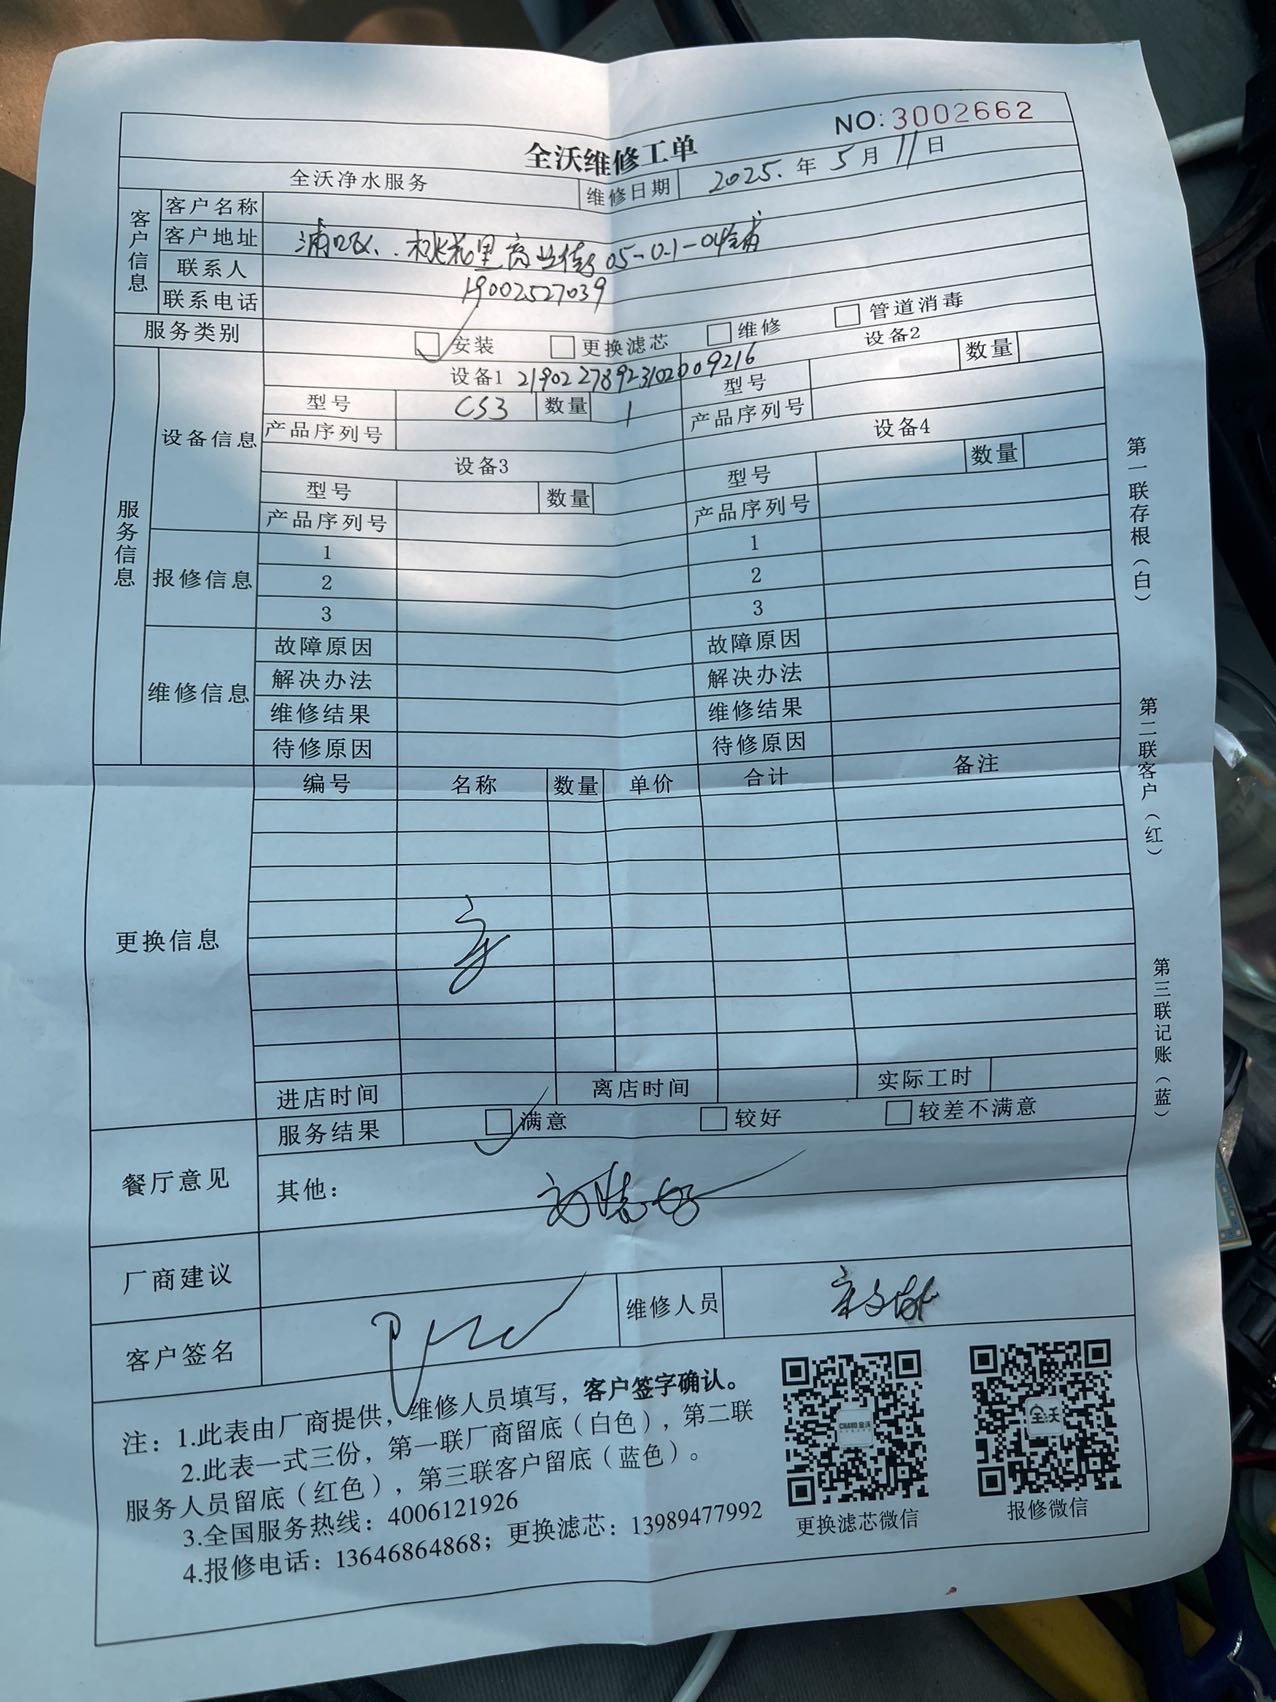 NO:3002662
全沃维修工单
全沃净水服务 维修日期 2025.年5月11日
客户信息
客户名称
客户地址 浦口区..桃花里商业街05-01-04铺
联系人
联系电话 19002527039
服务类别 安装 更换滤芯 维修 管道消毒
服务信息
设备信息
设备1 设备2
型号 CS3 数量 1 型号 数量
产品序列号 产品序列号
设备3 设备4
型号 数量 型号 数量
产品序列号 产品序列号
报修信息
1 1
2 2
3 3
维修信息
故障原因 故障原因
解决办法 解决办法
维修结果 维修结果
待修原因 待修原因
更换信息
编号 名称 数量 单价 合计 备注
进店时间 离店时间 实际工时
服务结果 满意 较好 较差不满意
餐厅意见 其他：
厂商建议
客户签名 维修人员
注：1.此表由厂商提供，维修人员填写，客户签字确认。
2.此表一式三份，第一联厂商留底（白色），第二联
服务人员留底（红色），第三联客户留底（蓝色）。
3.全国服务热线：4006121926
4.报修电话：13646864868；更换滤芯：13989477992
更换滤芯微信
全沃
报修微信
第一联存根（白）
第二联客户（红）
第三联记账（蓝）